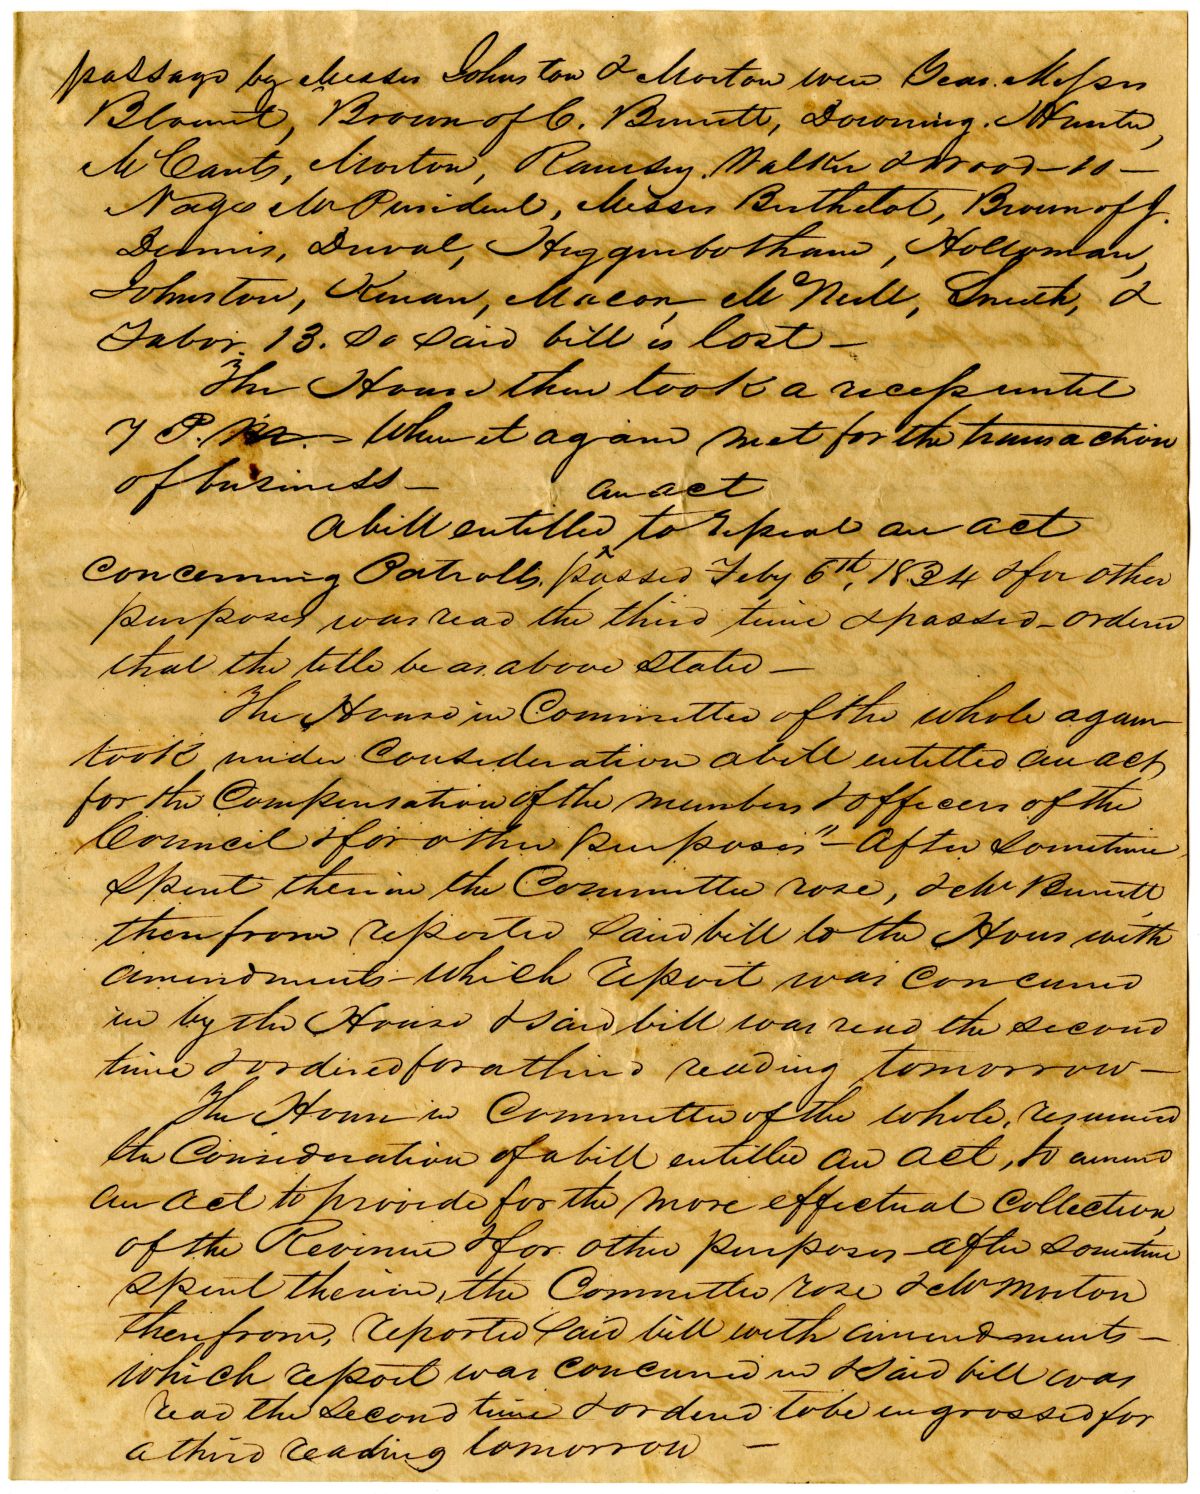 passage by Messrs Johnston & Morton were Yeas. Messrs
Blount, Brown of C. Burritt, Downing. Hunter,
McCants, Morton, Ramsey. Walker & Wood—10—
Nays Mr President, Messrs Berthelot, Brown of J.
Dennis, Duval, Higginbotham, Holloman,
Johnston, Kenan, Macon, McNeill, Smith, &
Tabor. 13. So said bill is lost—
The House then took a recess until
7 P.M.— When it again met for the transaction
of business—
an act
A bill entitled ^ to repeal an act
concerning Patrolls, passed Feby 6th, 1834 & for other
purposes was read the third time & passed—ordered
that the title be as above stated—
The House in Committee of the whole again
took under consideration a bill entitled an act
for the Compensation of the members & officers of the
Council & for other purposes"—After sometime
spent therein the Committee rose, & Mr Burritt
therefrom reported said bill to the Hous with
amendments—which report was concurred
in by the House & said bill was read the second
time & ordered for a third reading tomorrow—
The House in Committee of the whole, resumed
the Consideration of a bill entitled an act, to amend
an act to provide for the more effectual Collection,
of the Revenue & for other purposes—after sometime
spent therein, the Committee rose & Mr Morton
therefrom, reported said bill with amendments—
which report was concurred in & said bill was
read the second time & ordered to be engrossed for
a third reading tomorrow—